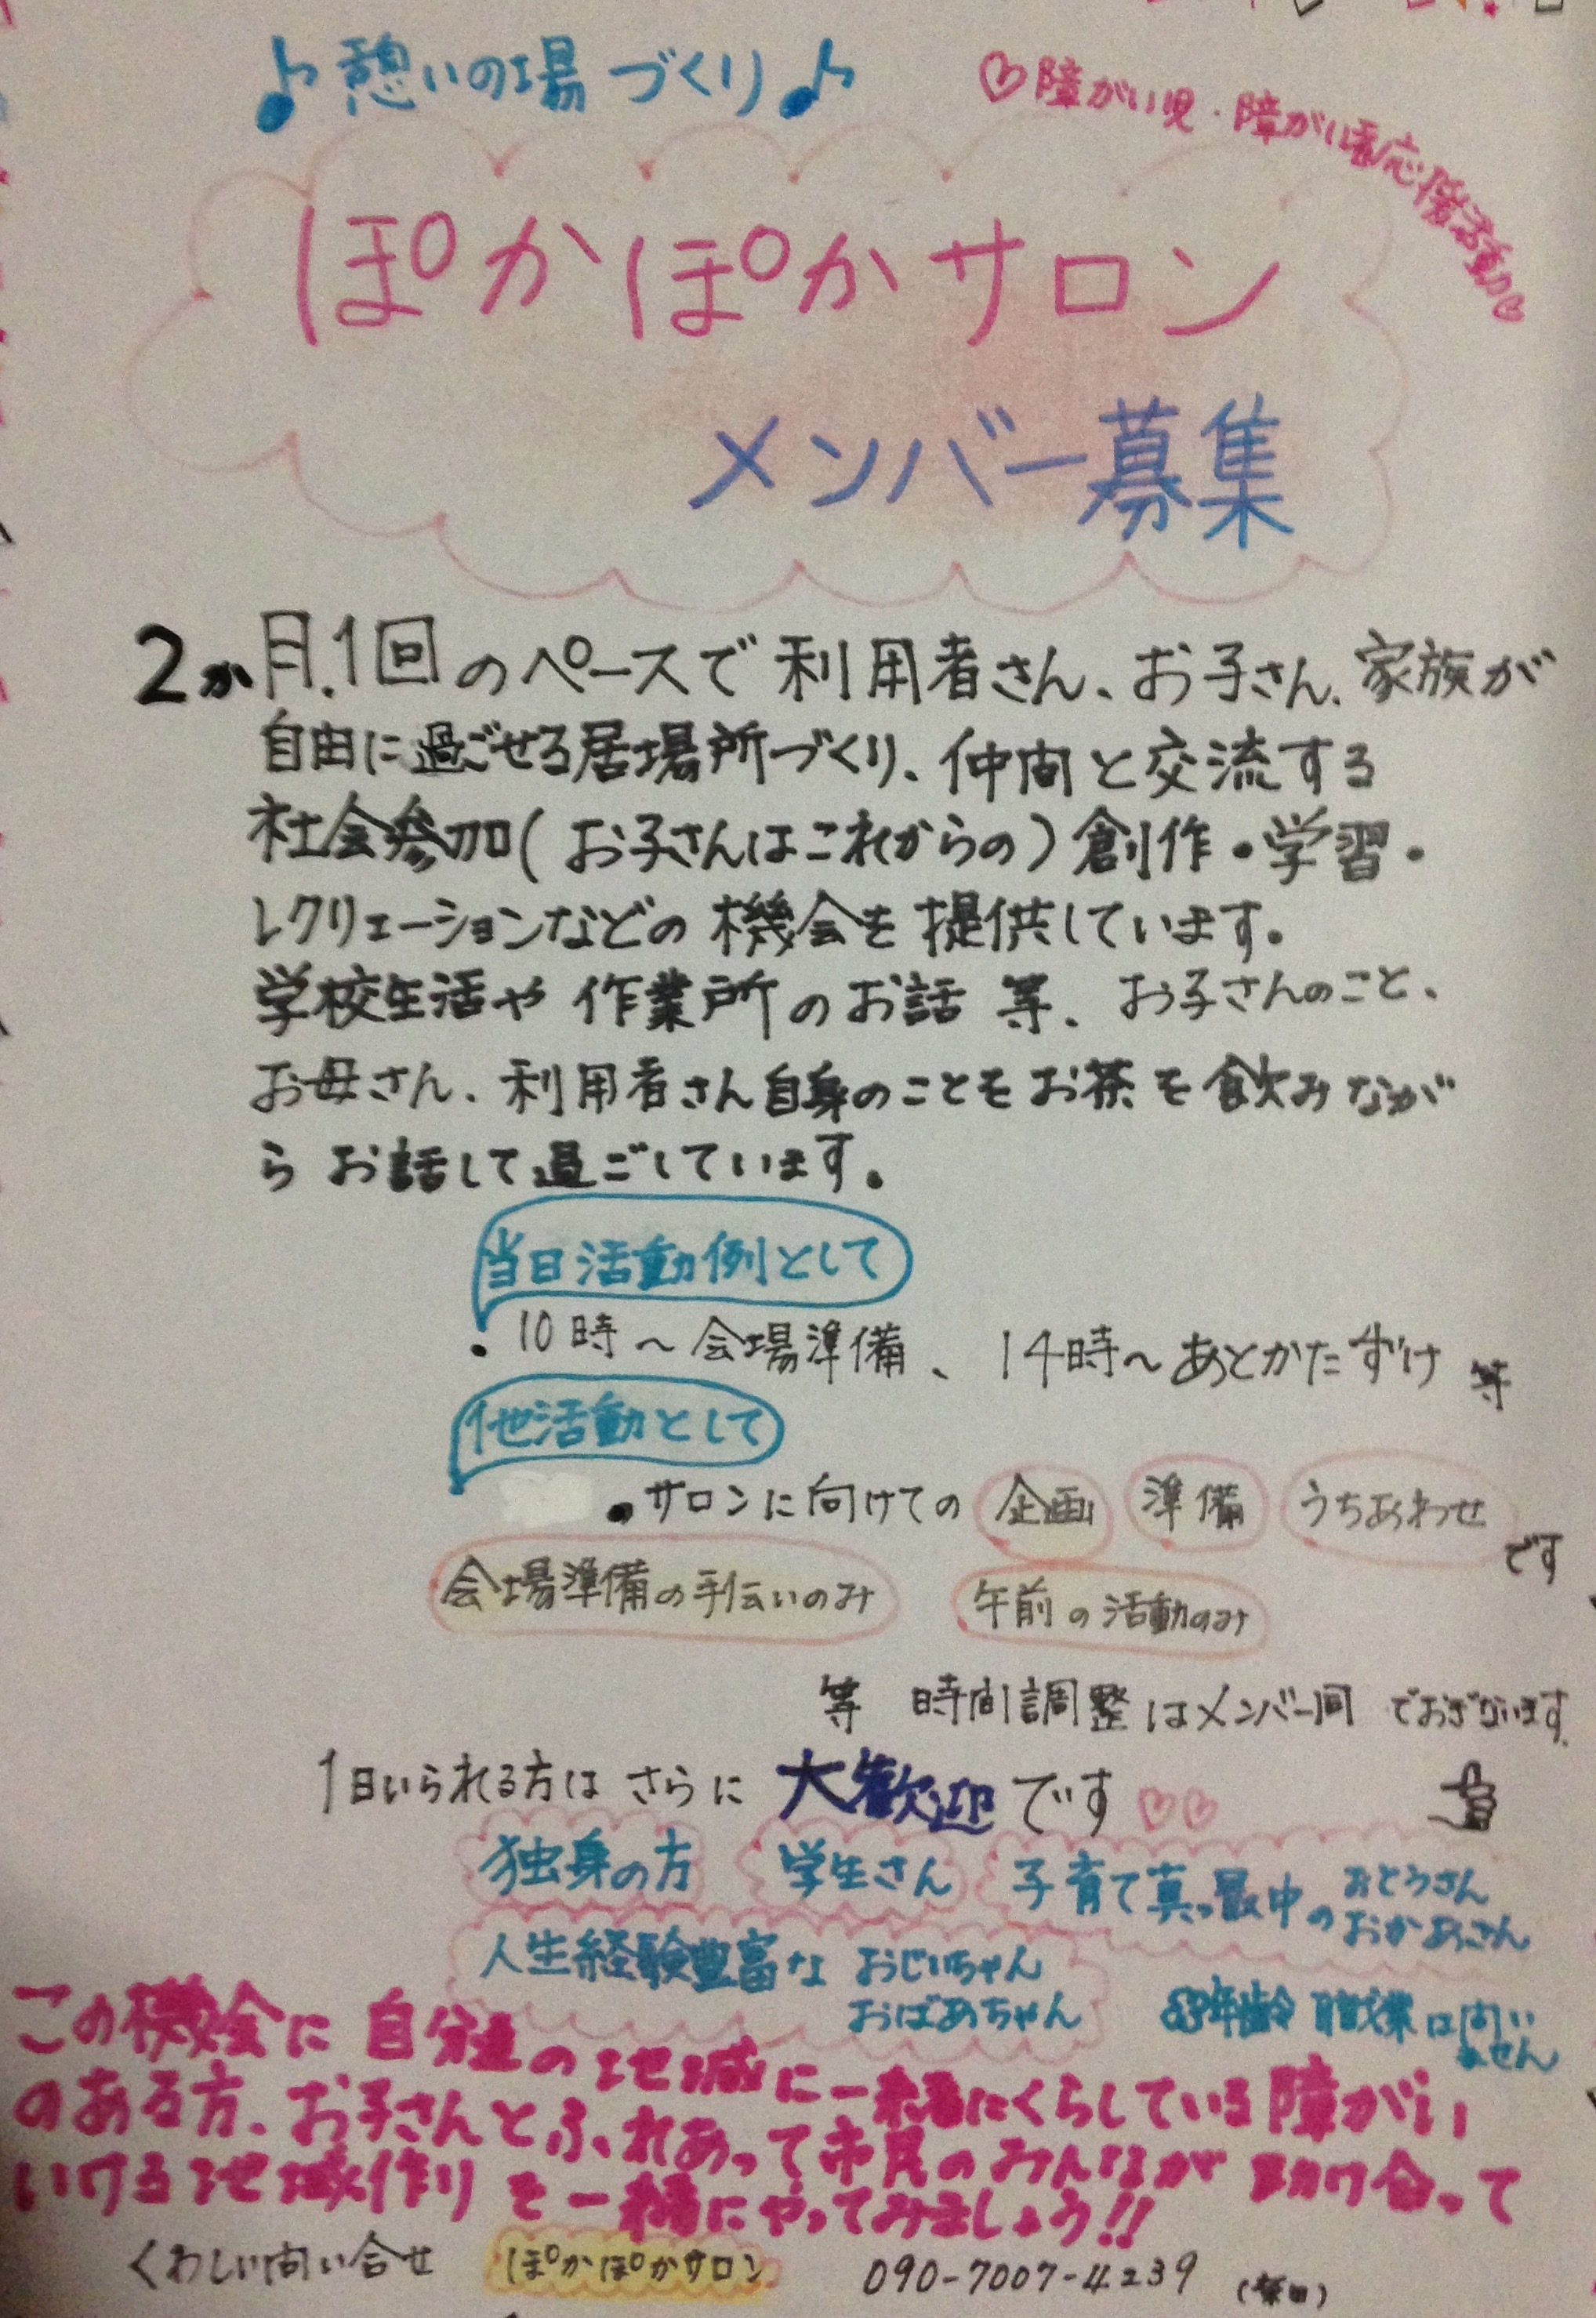 ♪憩いの場づくり♪
♡障がい児・障がい者応援活動♡
ぽかぽかサロン
メンバー募集
2か月.1回のペースで利用者さん、お子さん、家族が
自由に過ごせる居場所づくり、仲間と交流する
社会参加(お子さんはこれからの)創作・学習・
レクリェーションなどの機会を提供しています。
学校生活や作業所のお話等、お子さんのこと、
お母さん、利用者さん自身のことをお茶を飲みなが
らお話して過ごしています。
当日活動例として
・10時〜会場準備、14時〜あとかたずけ等
他活動として
・サロンに向けての 企画 準備 うちあわせ
です
会場準備の手伝いのみ 午前の活動のみ
等 時間調整はメンバー間でおぎないます.
1日いられる方はさらに大歓迎です♡♡
独身の方 学生さん 子育て真っ最中の おとうさん
おかあさん
人生経験豊富な おじいちゃん
おばあちゃん
年齢 職業は問い
ません
この機会に自分達の地域に一緒にくらしている障がい
のある方、お子さんとふれあって市民のみんなが助け合って
いける地域作りを一緒にやってみましょう!!
くわしい問い合せ ぽかぽかサロン 090-7007-4239